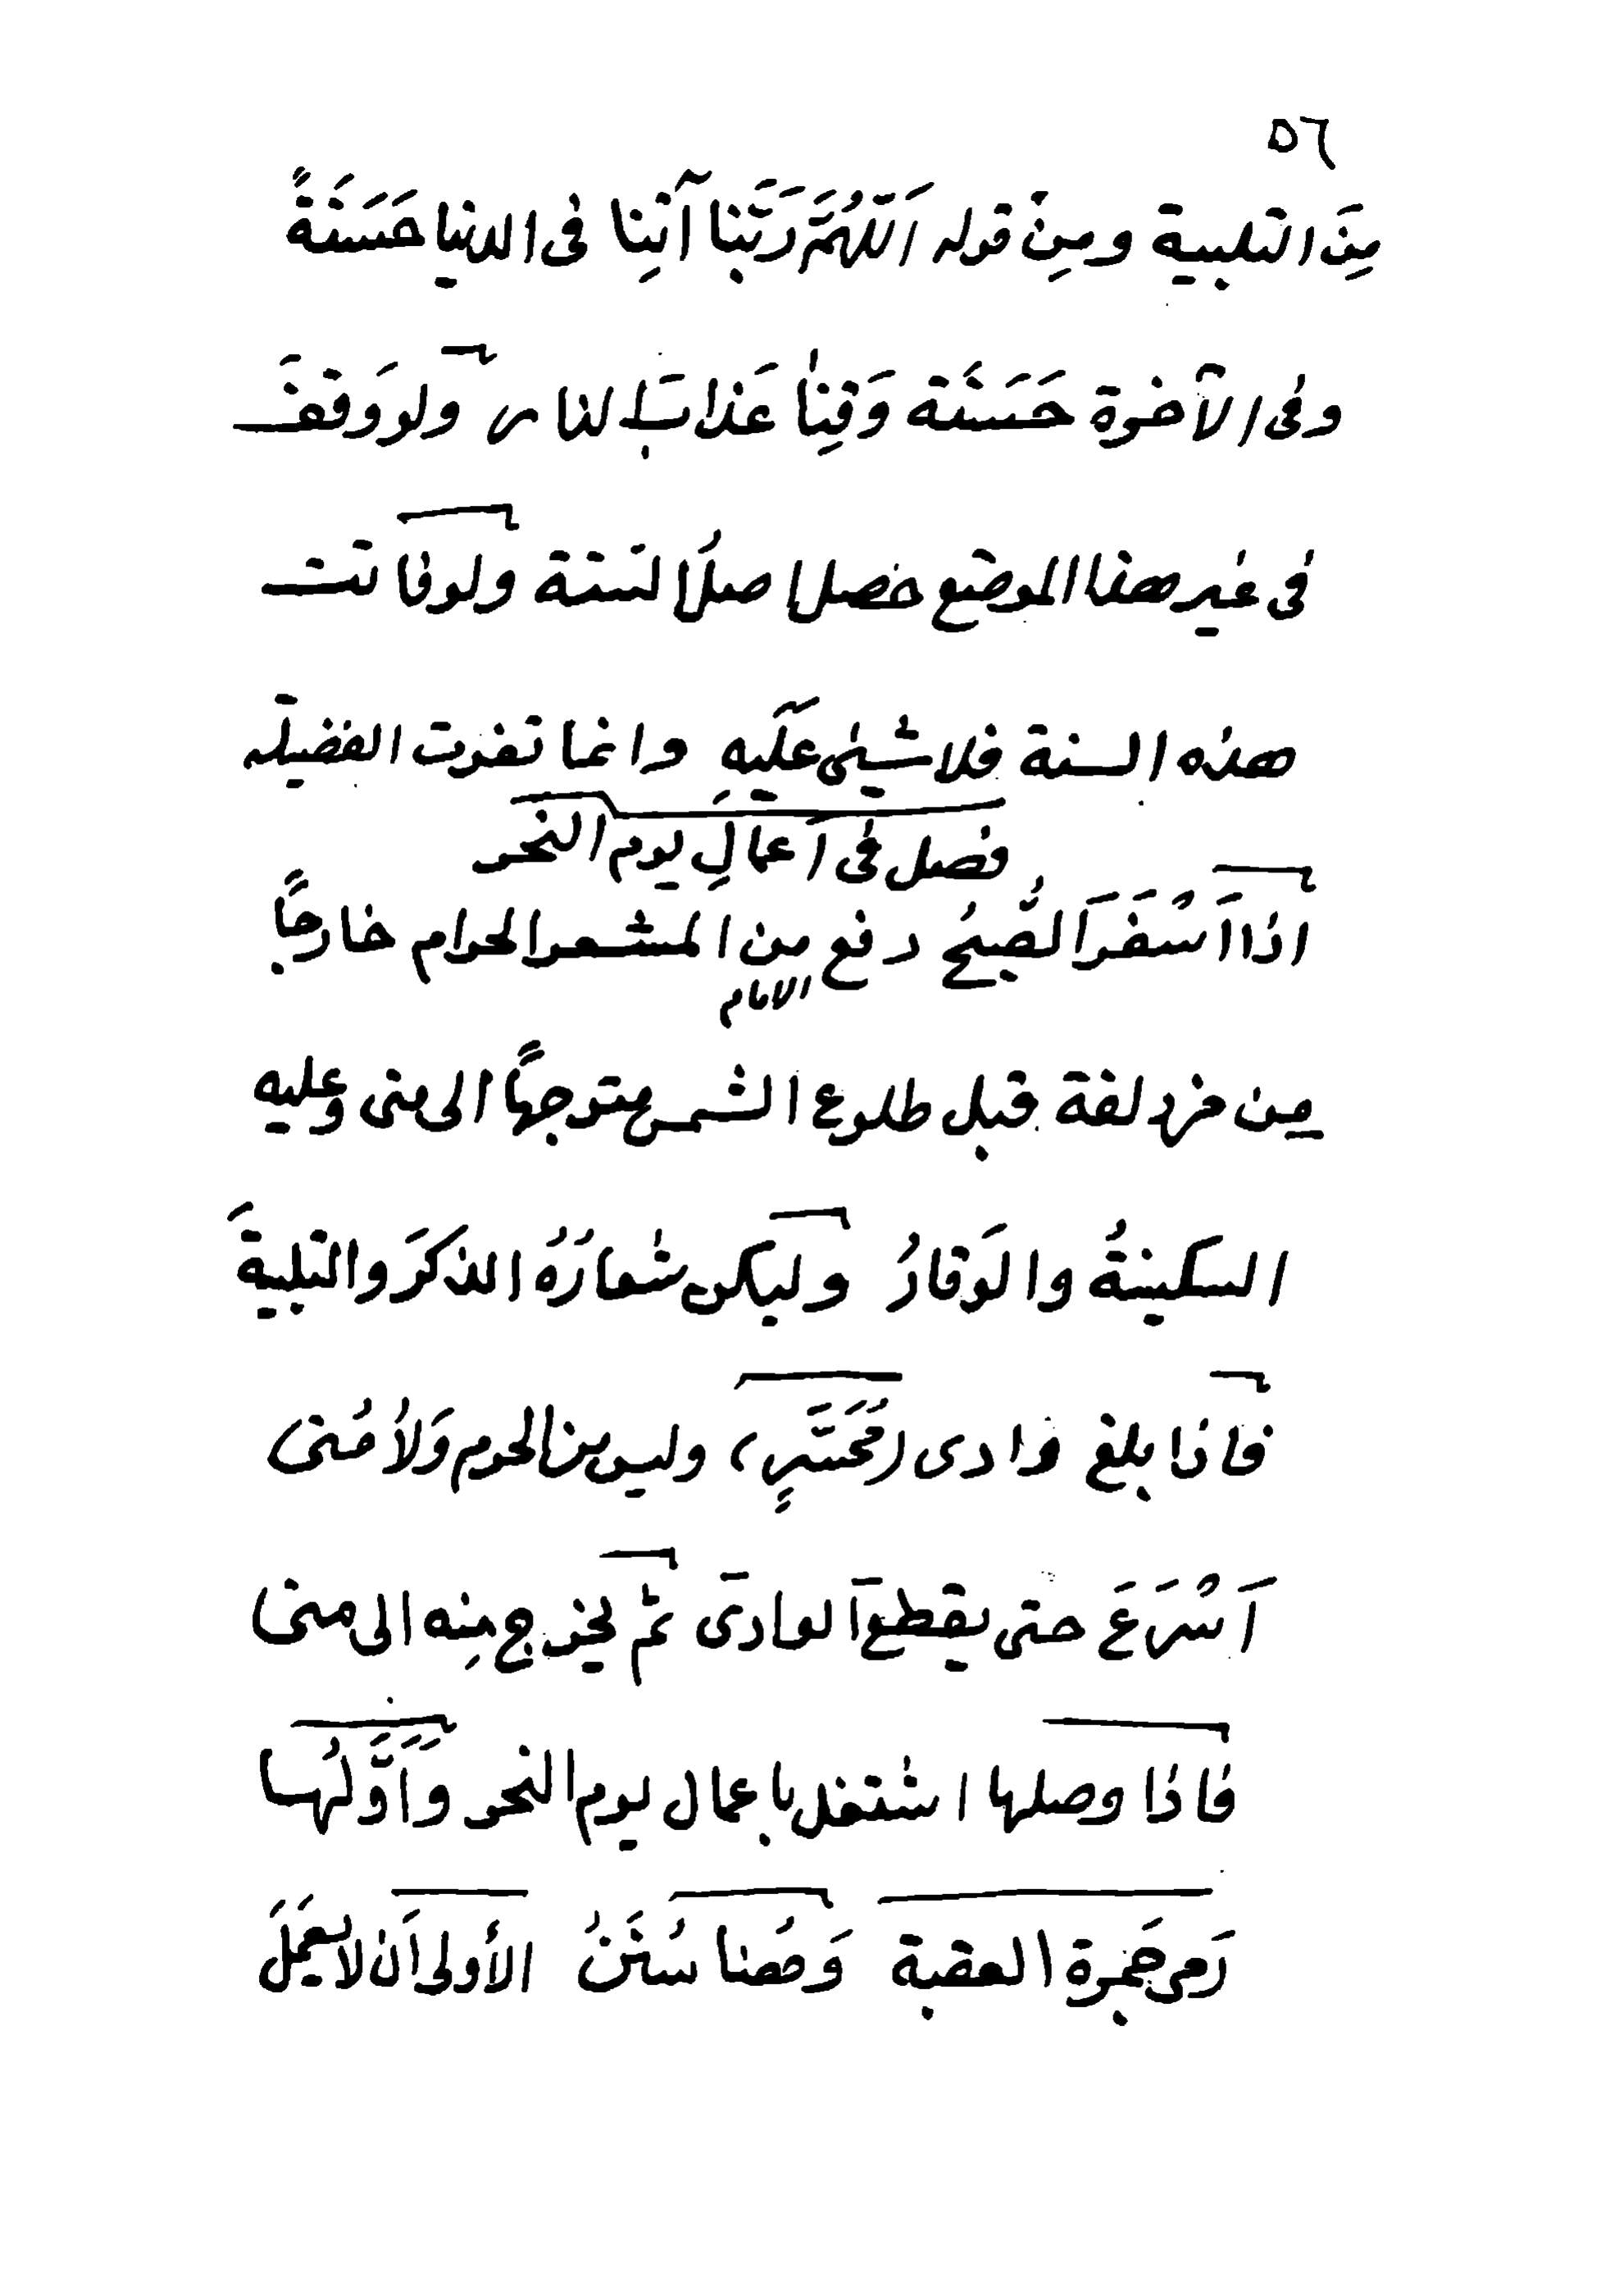 ٥٦
مِنَ التلبية ومِنْ قوله اَللّهُمَّ رَبَّنا آتِنا فى الدنيا حَسَنَةً
وفى الآخرة حَسَنَة وَقِنا عَذابَ النار ولو وَقفَ
فى غير هذا الموضع حصل اصلُ السنة ولو فاتت
هذه السنة فلا شيئ عَلَيهِ وانما تفوت الفضيلة
فصل فى اَعمالِ يوم النحر
اذا اَسْفَرَ الصُّبحُ دفع من المشعر الحرام خارجاً
الامام
مِن مزدلفة قبل طلوع الشمس متوجهاً الى منى وعليه
السكينةُ والوَقارُ وليكن شعارُهُ الذكرَ والتلبيةَ
فاذا بلغ وادى (مُحَسَّرٍ) وليس من الحرم وَلا مُنى
اَسْرَعَ حتى يقطعَ الوادىَ ثم يخرج مِنه الى منى
فاذا وصلها اشتغل باعمال يوم النحر وَاَوَّلُها
رَمى جَمرة العقبة وَهُنا سُنَنُ الأولى اَن لا يعمَلَ